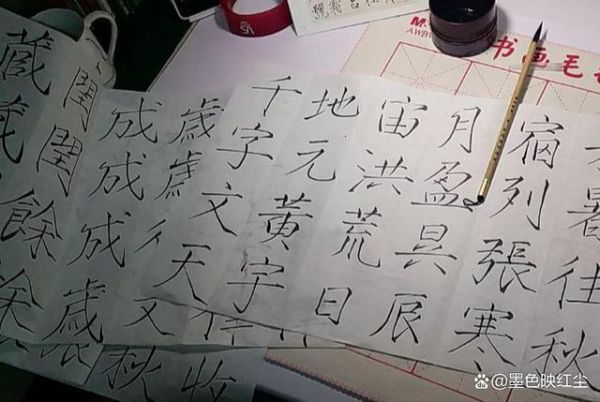 藏
藏
閏閏餘
成成成歲
歲歲
千字文天
地元黃宇
宙洪荒日
月盈昃辰
宿列張寒
暑往秋
秋收
书画毛
@墨色映红尘